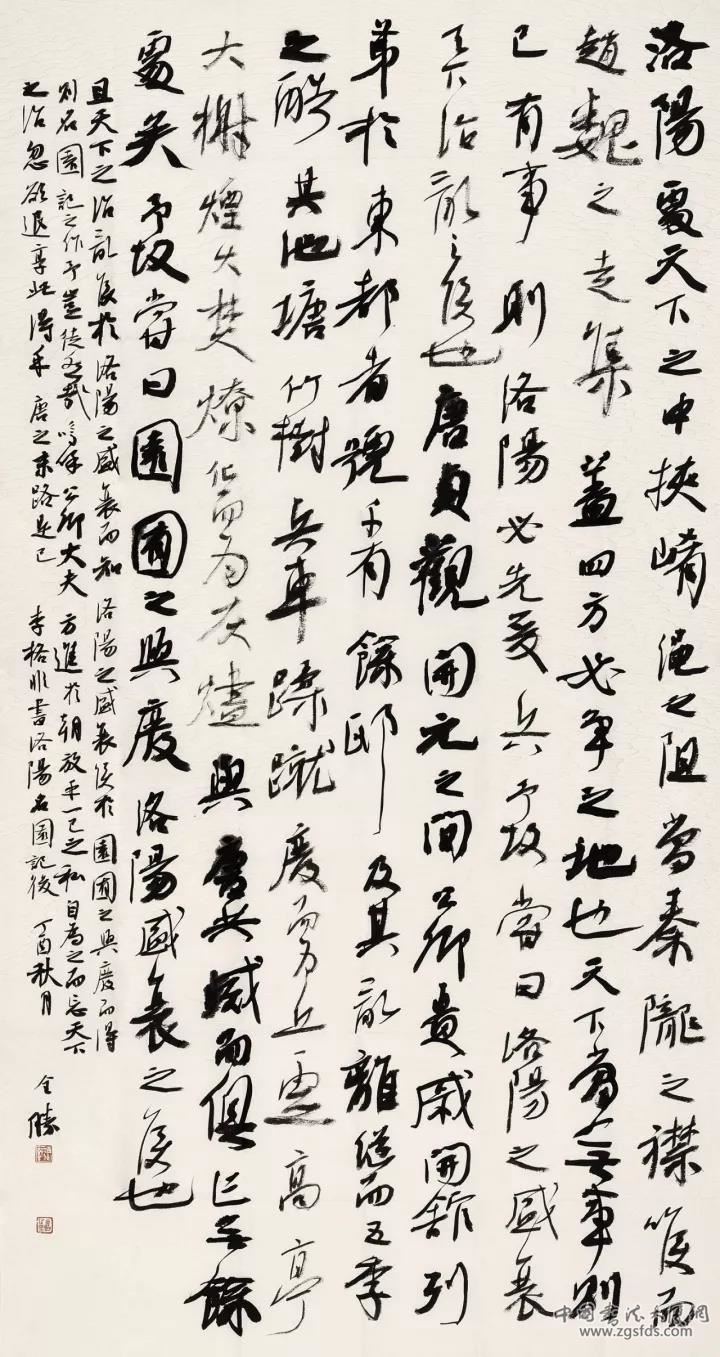 洛陽處天下之中挾崤澠之阻當秦隴之襟喉而
趙魏之走集蓋四方必爭之地也天下當無事則
已有事則洛陽必先受兵予故嘗曰洛陽之盛衰
天下治亂之候也唐貞觀開元之間公卿貴戚開館列
第於東都者號千有餘邸及其亂離繼而五季
之酷其池塘竹樹兵車蹂蹴廢而為丘墟高亭
大榭煙火焚燎化而為灰燼與唐共滅而俱亡無餘
處矣予故嘗曰園囿之興廢洛陽盛衰之候也
且天下之治亂候於洛陽之盛衰而知洛陽之盛衰候於園囿之興廢而得
則名園記之作予豈徒然哉嗚呼公卿大夫方進於朝放乎一己之私自為之而忘天下
之治忽欲退享此得乎唐之末路是已 李格非書洛陽名園記後 丁酉秋月 全勝
www.zgsfds.com